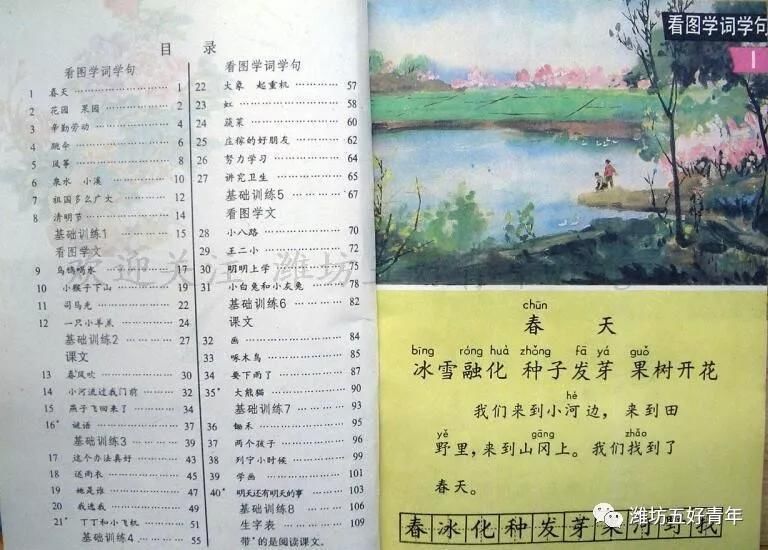 目 录
看图学词学句
1 春天 ………… 1
2 花园 果园 ………… 2
3 辛勤劳动 ………… 4
4 跳伞 ………… 6
5 风筝 ………… 8
6 泉水 小溪 ………… 10
7 祖国多么广大 ………… 12
8 清明节 ………… 14
基础训练1 ………… 15
看图学文
9 乌鸦喝水 ………… 17
10 小猴子下山 ………… 19
11 司马光 ………… 22
12 一只小羊羔 ………… 24
基础训练2 ………… 27
课文
13 春风吹 ………… 30
14 小河流过我门前 ………… 32
15 燕子飞回来了 ………… 34
16* 谜语 ………… 37
基础训练3 ………… 39
17 这个办法真好 ………… 43
18 送雨衣 ………… 45
19 她是谁 ………… 47
20 我选我 ………… 49
21* 丁丁和小飞机 ………… 51
基础训练4 ………… 55
看图学词学句
22 大象 起重机 ………… 57
23 虹 ………… 58
24 蔬菜 ………… 60
25 庄稼的好朋友 ………… 62
26 努力学习 ………… 64
27 讲究卫生 ………… 65
基础训练5 ………… 67
看图学文
28 小八路 ………… 70
29 王二小 ………… 72
30 明明上学 ………… 75
31 小白兔和小灰兔 ………… 78
基础训练6 ………… 82
课文
32 画 ………… 84
33 啄木鸟 ………… 85
34 要下雨了 ………… 87
35* 大熊猫 ………… 90
基础训练7 ………… 93
36 锄禾 ………… 96
37 两个孩子 ………… 97
38 列宁小时候 ………… 99
39 学画 ………… 101
40* 明天还有明天的事 ………… 103
基础训练8 ………… 106
生字表 ………… 109
带*的是阅读课文。
看图学词学句
1
chūn
春 天
bīng róng huà zhǒng fā yá guǒ
冰雪融化 种子发芽 果树开花
hé
我们来到小河边，来到田
yě gāng zhǎo
野里，来到山冈上。我们找到了
春天。
春冰化种发芽果河野找
潍坊五好青年